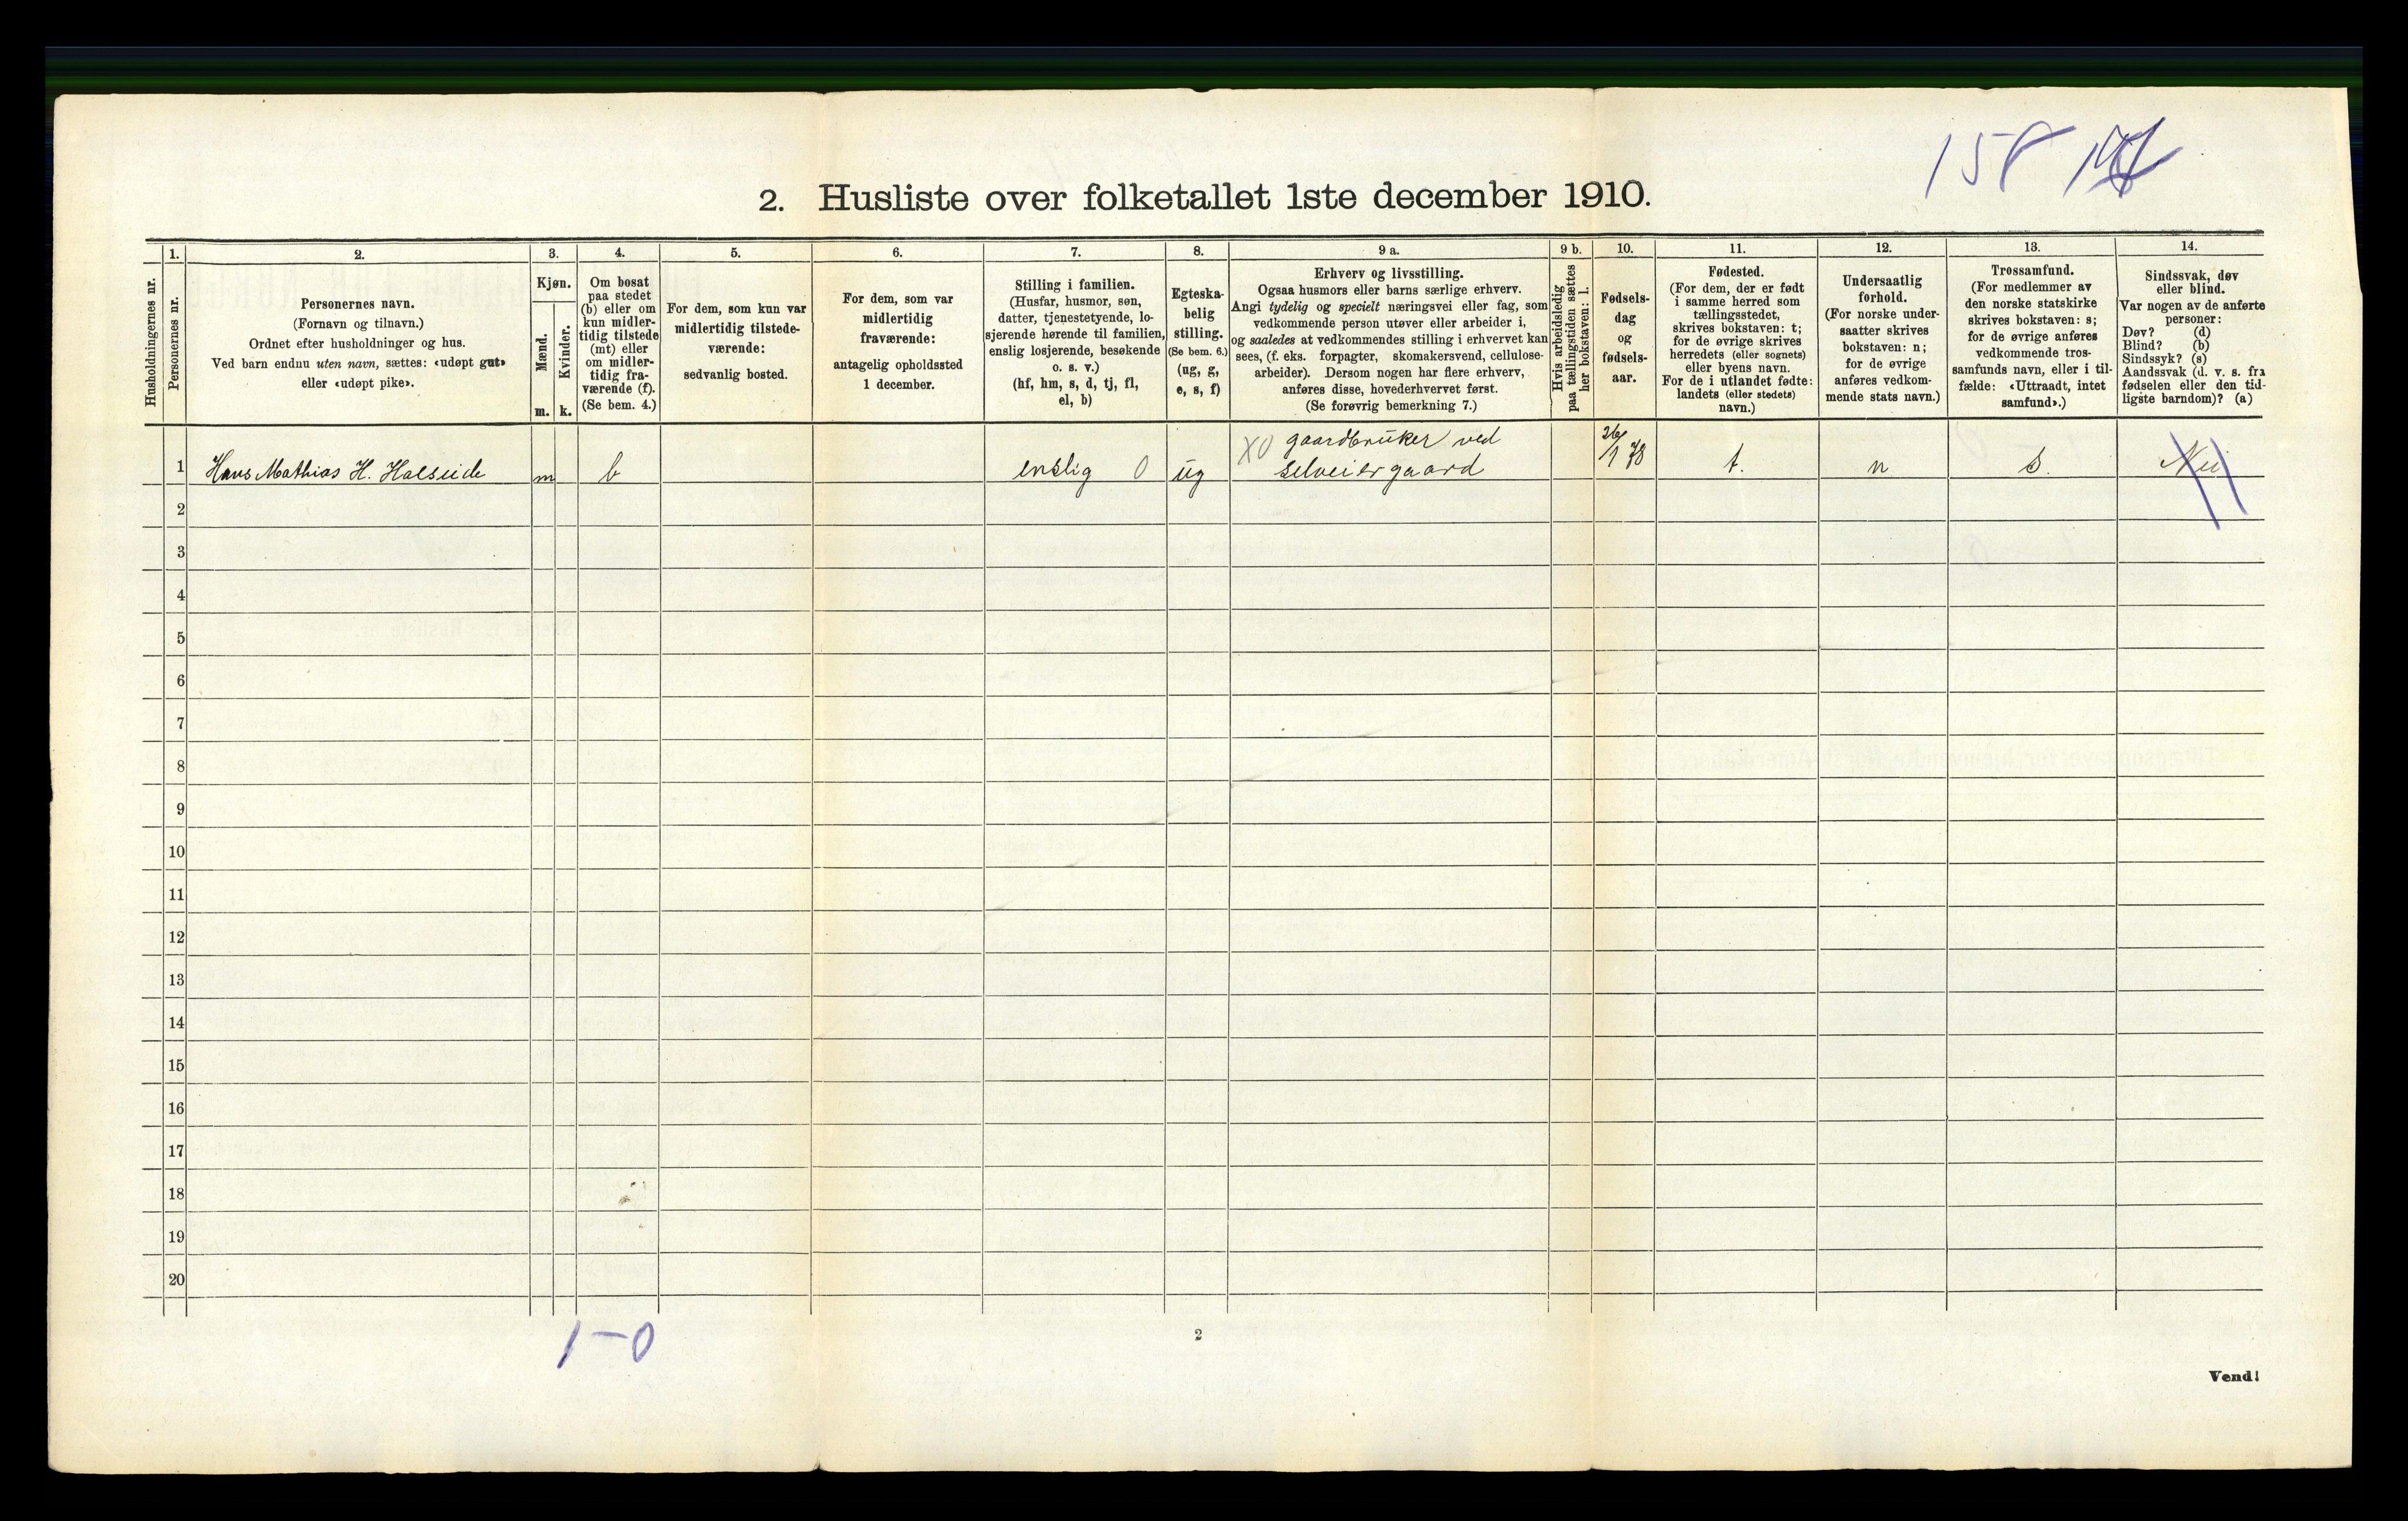 158
2. Husliste over folketallet 1ste december 1910.
Husholdningernes nr.
1.
Personernes nr.
2.
Personernes navn.
(Fornavn og tilnavn.)
Ordnet efter husholdninger og hus.
Ved barn endnu uten navn, sættes: «udøpt gut»
eller «udøpt pike».
3.
Kjøn.
Mænd.
Kvinder.
m. k.
4.
Om bosat
paa stedet
(b) eller om
kun midler-
tidig tilstede
(mt) eller
om midler-
tidig fra-
værende (f).
(Se bem. 4.)
5.
For dem, som kun var
midlertidig tilstede-
værende:
sedvanlig bosted.
6.
For dem, som var
midlertidig
fraværende:
antagelig opholdssted
1 december.
7.
Stilling i familien.
(Husfar, husmor, søn,
datter, tjenestetyende, lo-
sjerende hørende til familien,
enslig losjerende, besøkende
o. s. v.)
(hf, hm, s, d, tj, fl,
el, b)
8.
Egteska-
belig
stilling.
(Se bem. 6.)
(ug, g,
e, s, f)
9 a.
Erhverv og livsstilling.
Ogsaa husmors eller barns særlige erhverv.
Angi tydelig og specielt næringsvei eller fag, som
vedkommende person utøver eller arbeider i,
og saaledes at vedkommendes stilling i erhvervet kan
sees, (f. eks. forpagter, skomakersvend, cellulose-
arbeider). Dersom nogen har flere erhverv,
anføres disse, hovederhvervet først.
(Se forøvrig bemerkning 7.)
9 b.
Hvis arbeidsledig
paa tællingstiden sættes
her bokstaven: l.
10.
Fødsels-
dag
og
fødsels-
aar.
11.
Fødested.
(For dem, der er født
i samme herred som
tællingsstedet,
skrives bokstaven: t;
for de øvrige skrives
herredets (eller sognets)
eller byens navn.
For de i utlandet fødte:
landets (eller stedets)
navn.)
12.
Undersaatlig
forhold.
(For norske under-
saatter skrives
bokstaven: n;
for de øvrige
anføres vedkom-
mende stats navn.)
13.
Trossamfund.
(For medlemmer av
den norske statskirke
skrives bokstaven: s;
for de øvrige anføres
vedkommende tros-
samfunds navn, eller i til-
fælde: «Uttraadt, intet
samfund».)
14.
Sindssvak, døv
eller blind.
Var nogen av de anførte
personer:
Døv? (d)
Blind? (b)
Sindssyk? (s)
Aandssvak (d. v. s. fra
fødselen eller den tid-
ligste barndom)? (a)
1 Hans Mathias H. Halseide m b enslig 0 ug X0 gaardbruker ved
selveiergaard 26/1 78 t. n s. Nei
2
3
4
5
6
7
8
9
10
11
12
13
14
15
16
17
18
19
20
1-0
2
Vend!